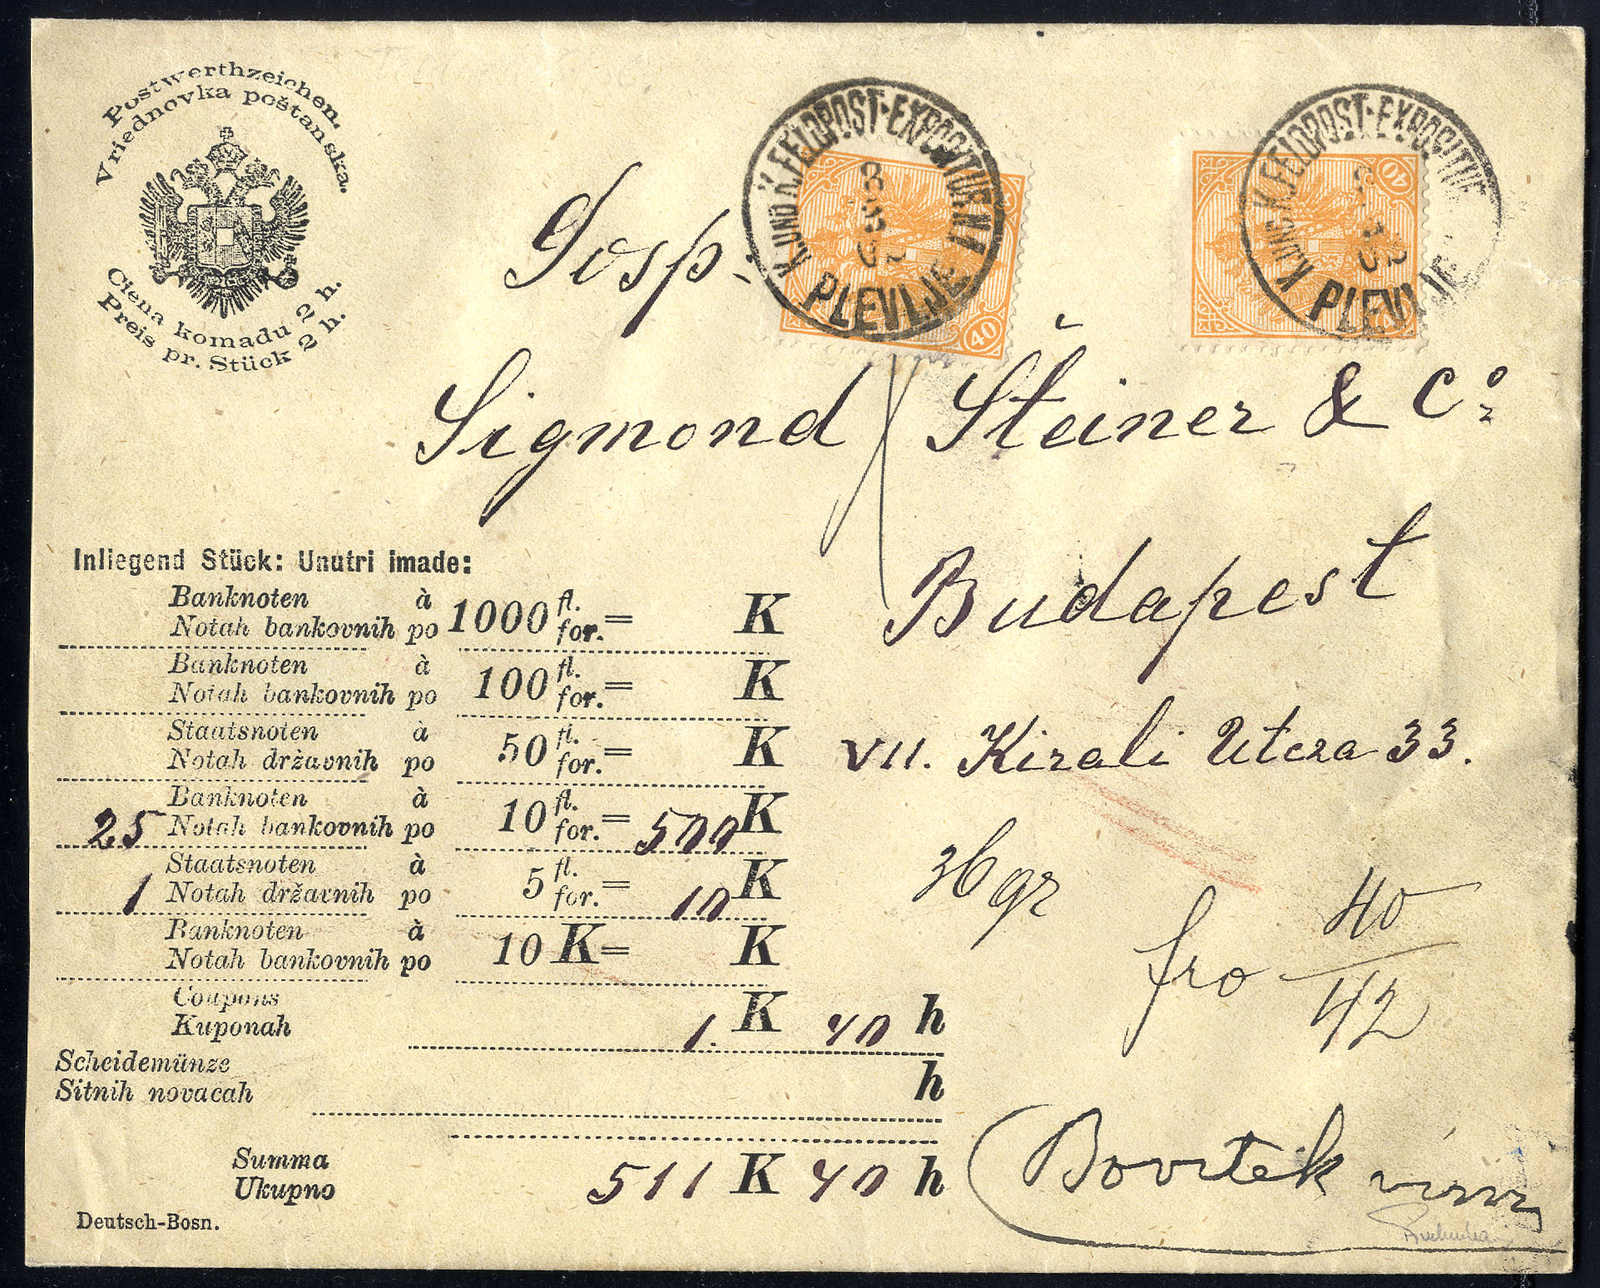 Postwerthzeichen.
Vriednovka poštanska.
Ciena komadu 2 h.
Preis pr. Stück 2 h.
K. UND K. FELDPOST-EXPOSITUR N1
8
3
PLEVLJE
40
K. UND K. FELDPOST-EXPOSITUR
PLEVLJE
40
Gosp.
Sigmond Šteiner & Co.
Budapest
VII. Kirali Utcza 33.
Inliegend Stück: Unutri imade:
Banknoten à 1000 fl. = K
Notah bankovnih po for.
Banknoten à 100 fl. = K
Notah bankovnih po for.
Staatsnoten à 50 fl. = K
Notah državnih po for.
Banknoten à 10 fl. = 500 K
25 Notah bankovnih po for.
Staatsnoten à 5 fl. = 10 K
1 Notah državnih po for.
Banknoten à 10 K = K
Notah bankovnih po
Coupons
Kuponah 1. K 40 h
Scheidemünze
Sitnih novacah h
Summa
Ukupno 511 K 40 h
Deutsch-Bosn.
36 gr
fro 40
42